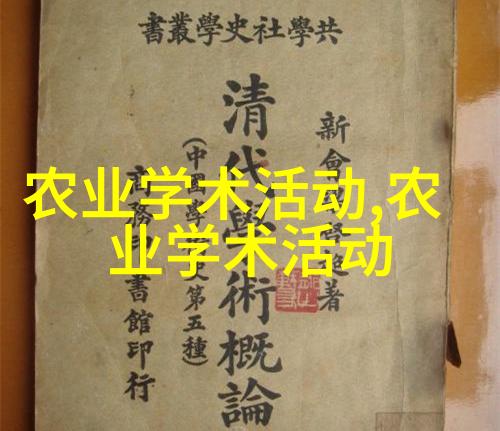 共學社史學叢書
新會梁啓超著
清代學術概論
(中國學術史第五種)
商務印書館印行
农业学术活动,农
业学术活动